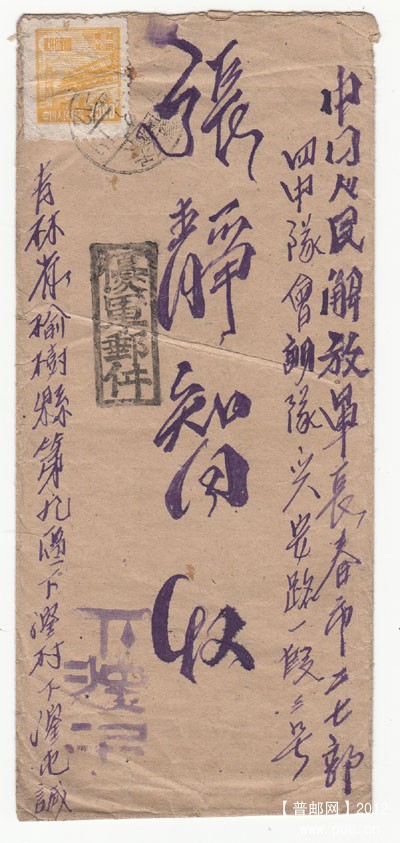 中国人民解放軍長春市二七部
四中隊會朗隊興安路一段三号
張靜智同收
優軍郵件
吉林省榆樹縣第九區下溼村下溼屯誠
【普邮网】2012